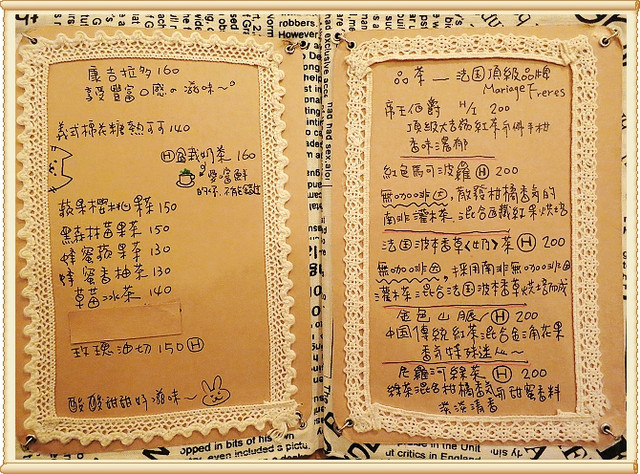 康吉拉多 160
享受豐富口感の滋味~
義式棉花糖熱可可 140
Ⓗ盆栽奶茶 160
愛嚐鮮
的你不能錯過
蘋果櫻桃果茶 150
黑森林莓果茶 150
蜂蜜蘋果茶 130
蜂蜜香柚茶 130
草莓冰茶 140
玫瑰油切 150 Ⓗ
酸酸甜甜好滋味~
品茶—法国頂級品牌
Mariage Freres
帝王伯爵 H/I 200
頂級大吉嶺紅茶与佛手柑
香味濃郁
紅色馬可波羅 Ⓗ 200
無咖啡因,散發柑橘香氣的
南非灌木茶,混合西藏紅果烘培
法国波本香草(奶)茶 Ⓗ 200
無咖啡因,採用南非無咖啡因
灌木茶混合法国波本香草烘培而成
金色山脈 Ⓗ 200
中国傳統紅茶混合金三角花果
香氣特殊迷人~
尼羅河綠茶 Ⓗ 200
綠茶混合柑橘香氣与甜蜜香料
茶淡清香